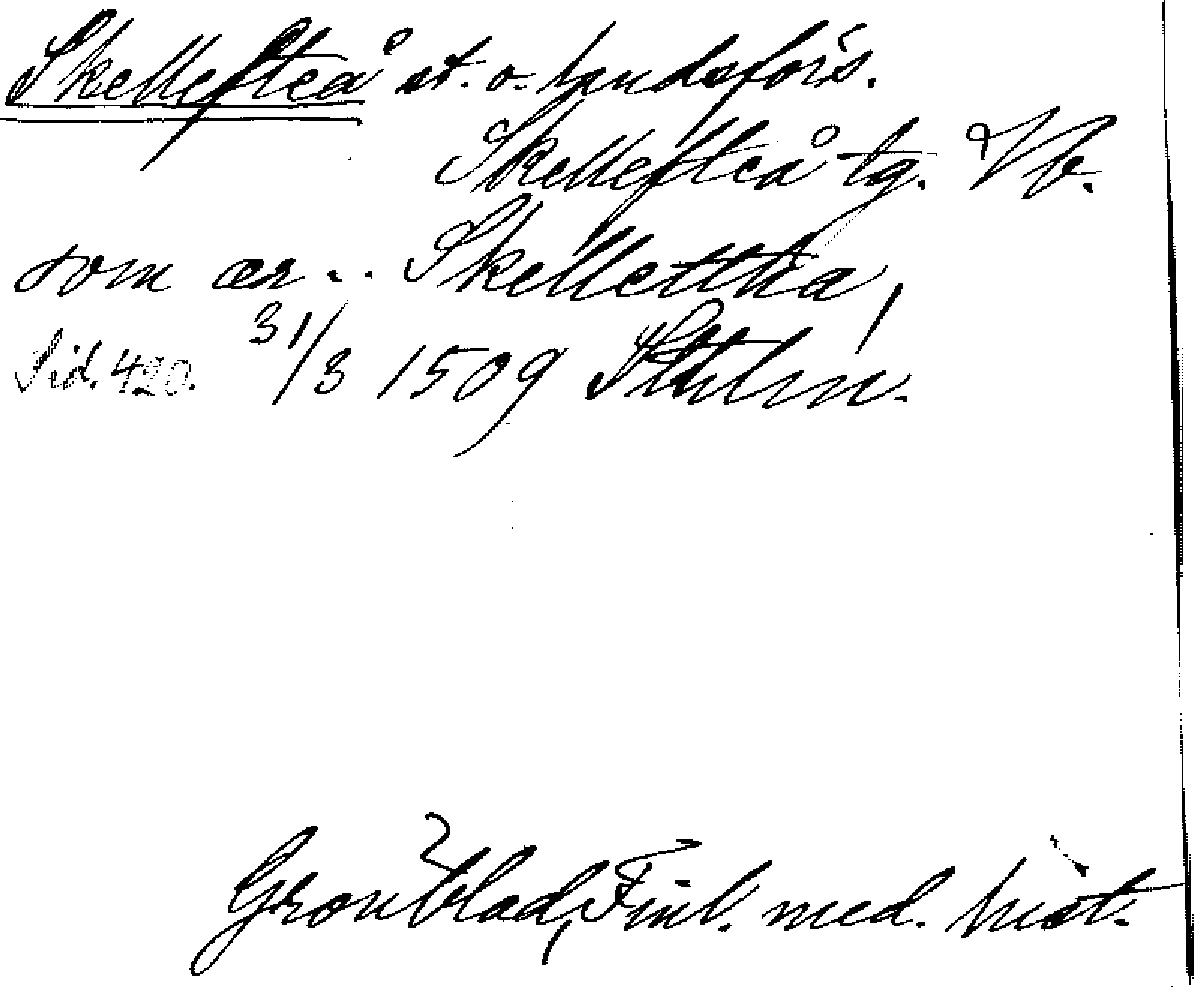 Skellefteå st. o. landsförs.
Skellefteå tg. Vb.
som ær .. Skellettha,
Sid. 420. 31/3 1509 Sthlm.
Grönblad, Finl. med. hist.